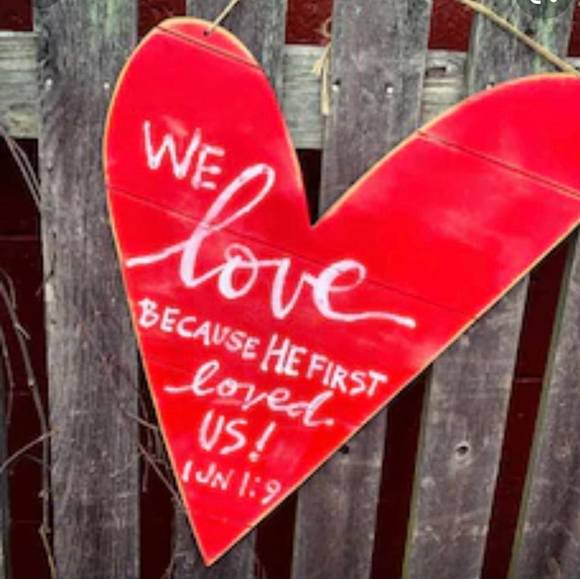 WE
love
BECAUSE HE FIRST
loved
US!
1 JN 1:9